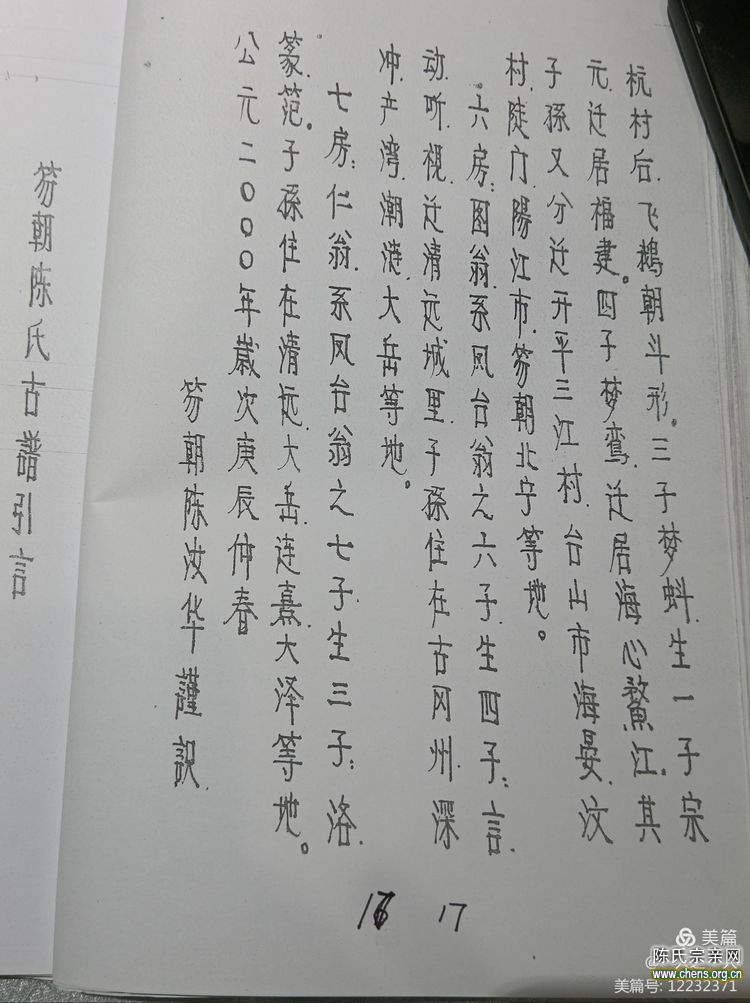 杭村后、飞鹅朝斗形。三子梦蚌、生一子宗
元、迁居福建。四子梦鸾、迁居海心鰲江。其
子孫又分迁开平三江村、台山市海晏、汶
村、陡门、陽江市、笏朝北宁等地。
六房：图翁系凤台翁之六子、生四子：言、
动、听、視、迁清远城里、子孫住在古冈州、深
冲、产湾、潮涟、大岳等地。
七房：仁翁系凤台翁之七子、生三子：洛、
篆、范。子孫住在清远、大岳、连熹、大泽等地。
公元二〇〇〇年歲次庚辰仲春
笏朝陈汝华謹説
笏朝陈氏古譜引言
16 17
美篇
陈氏宗亲网
www.chens.org.cn
美篇号: 12232371